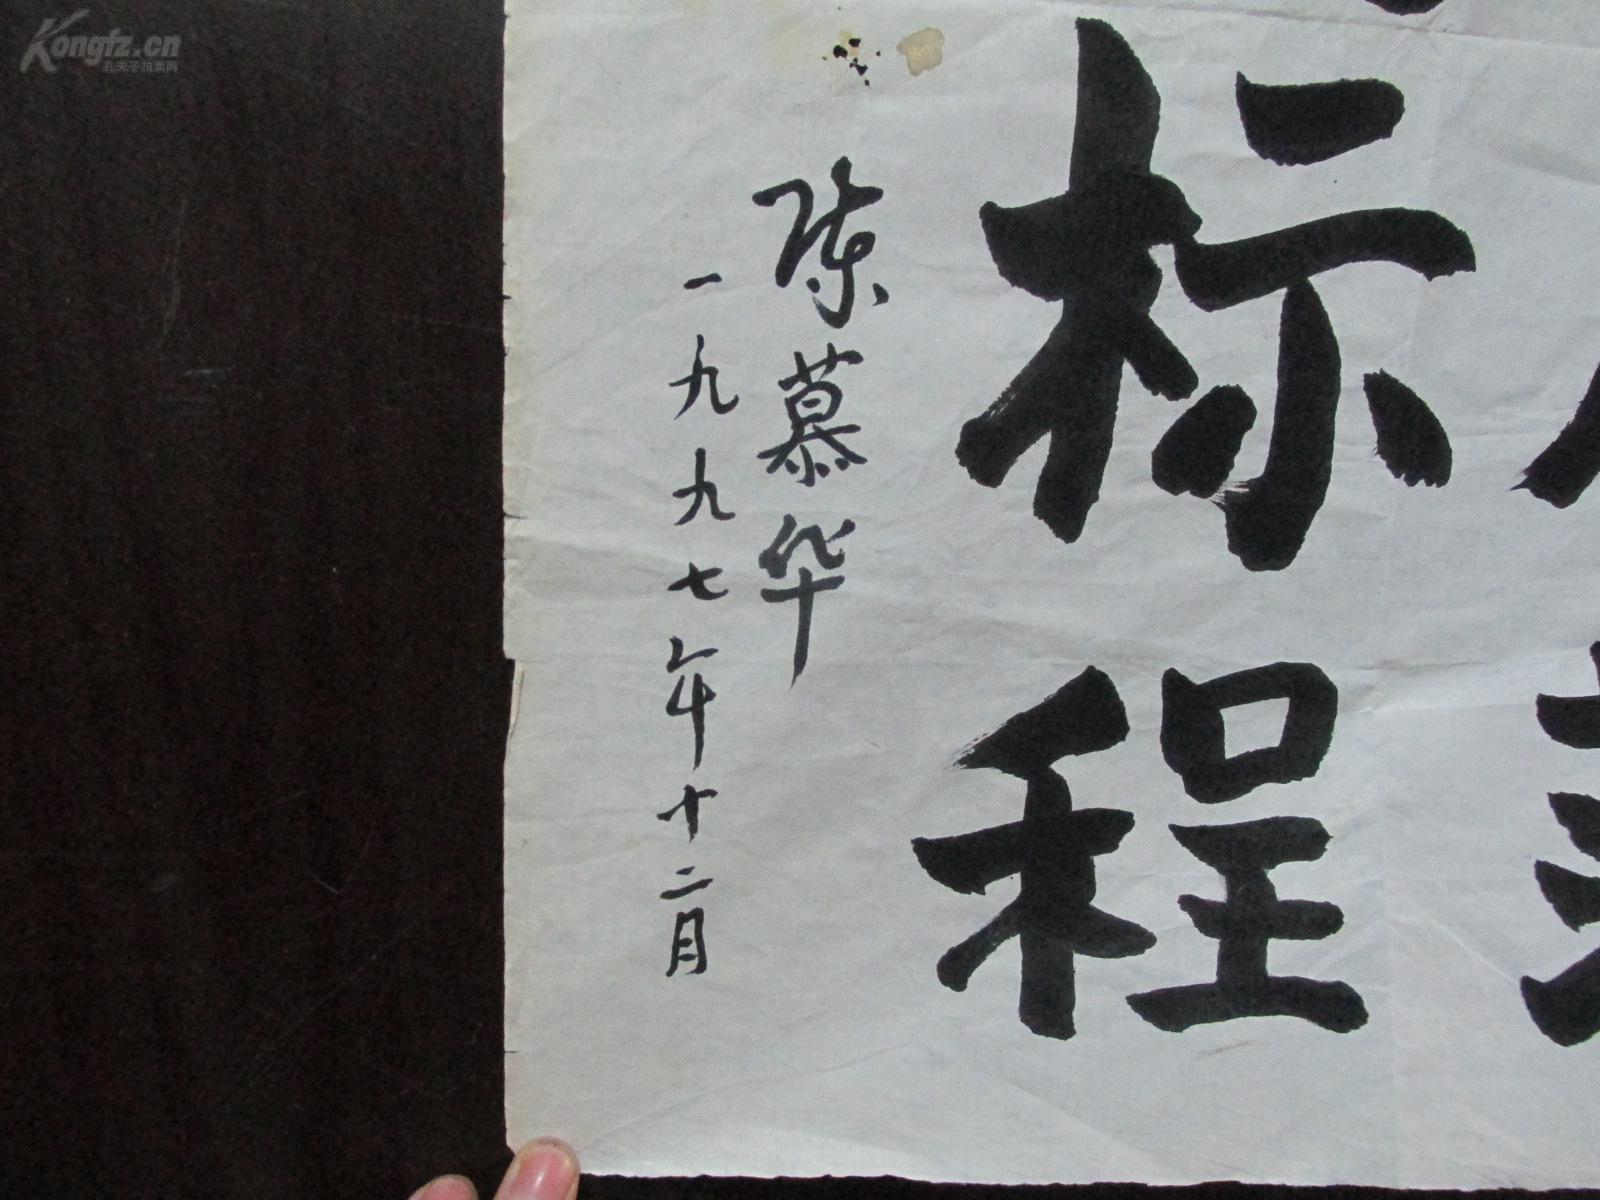 标程
陈慕华
一九九七年十二月
Kongfz.cn
孔夫子拍卖网